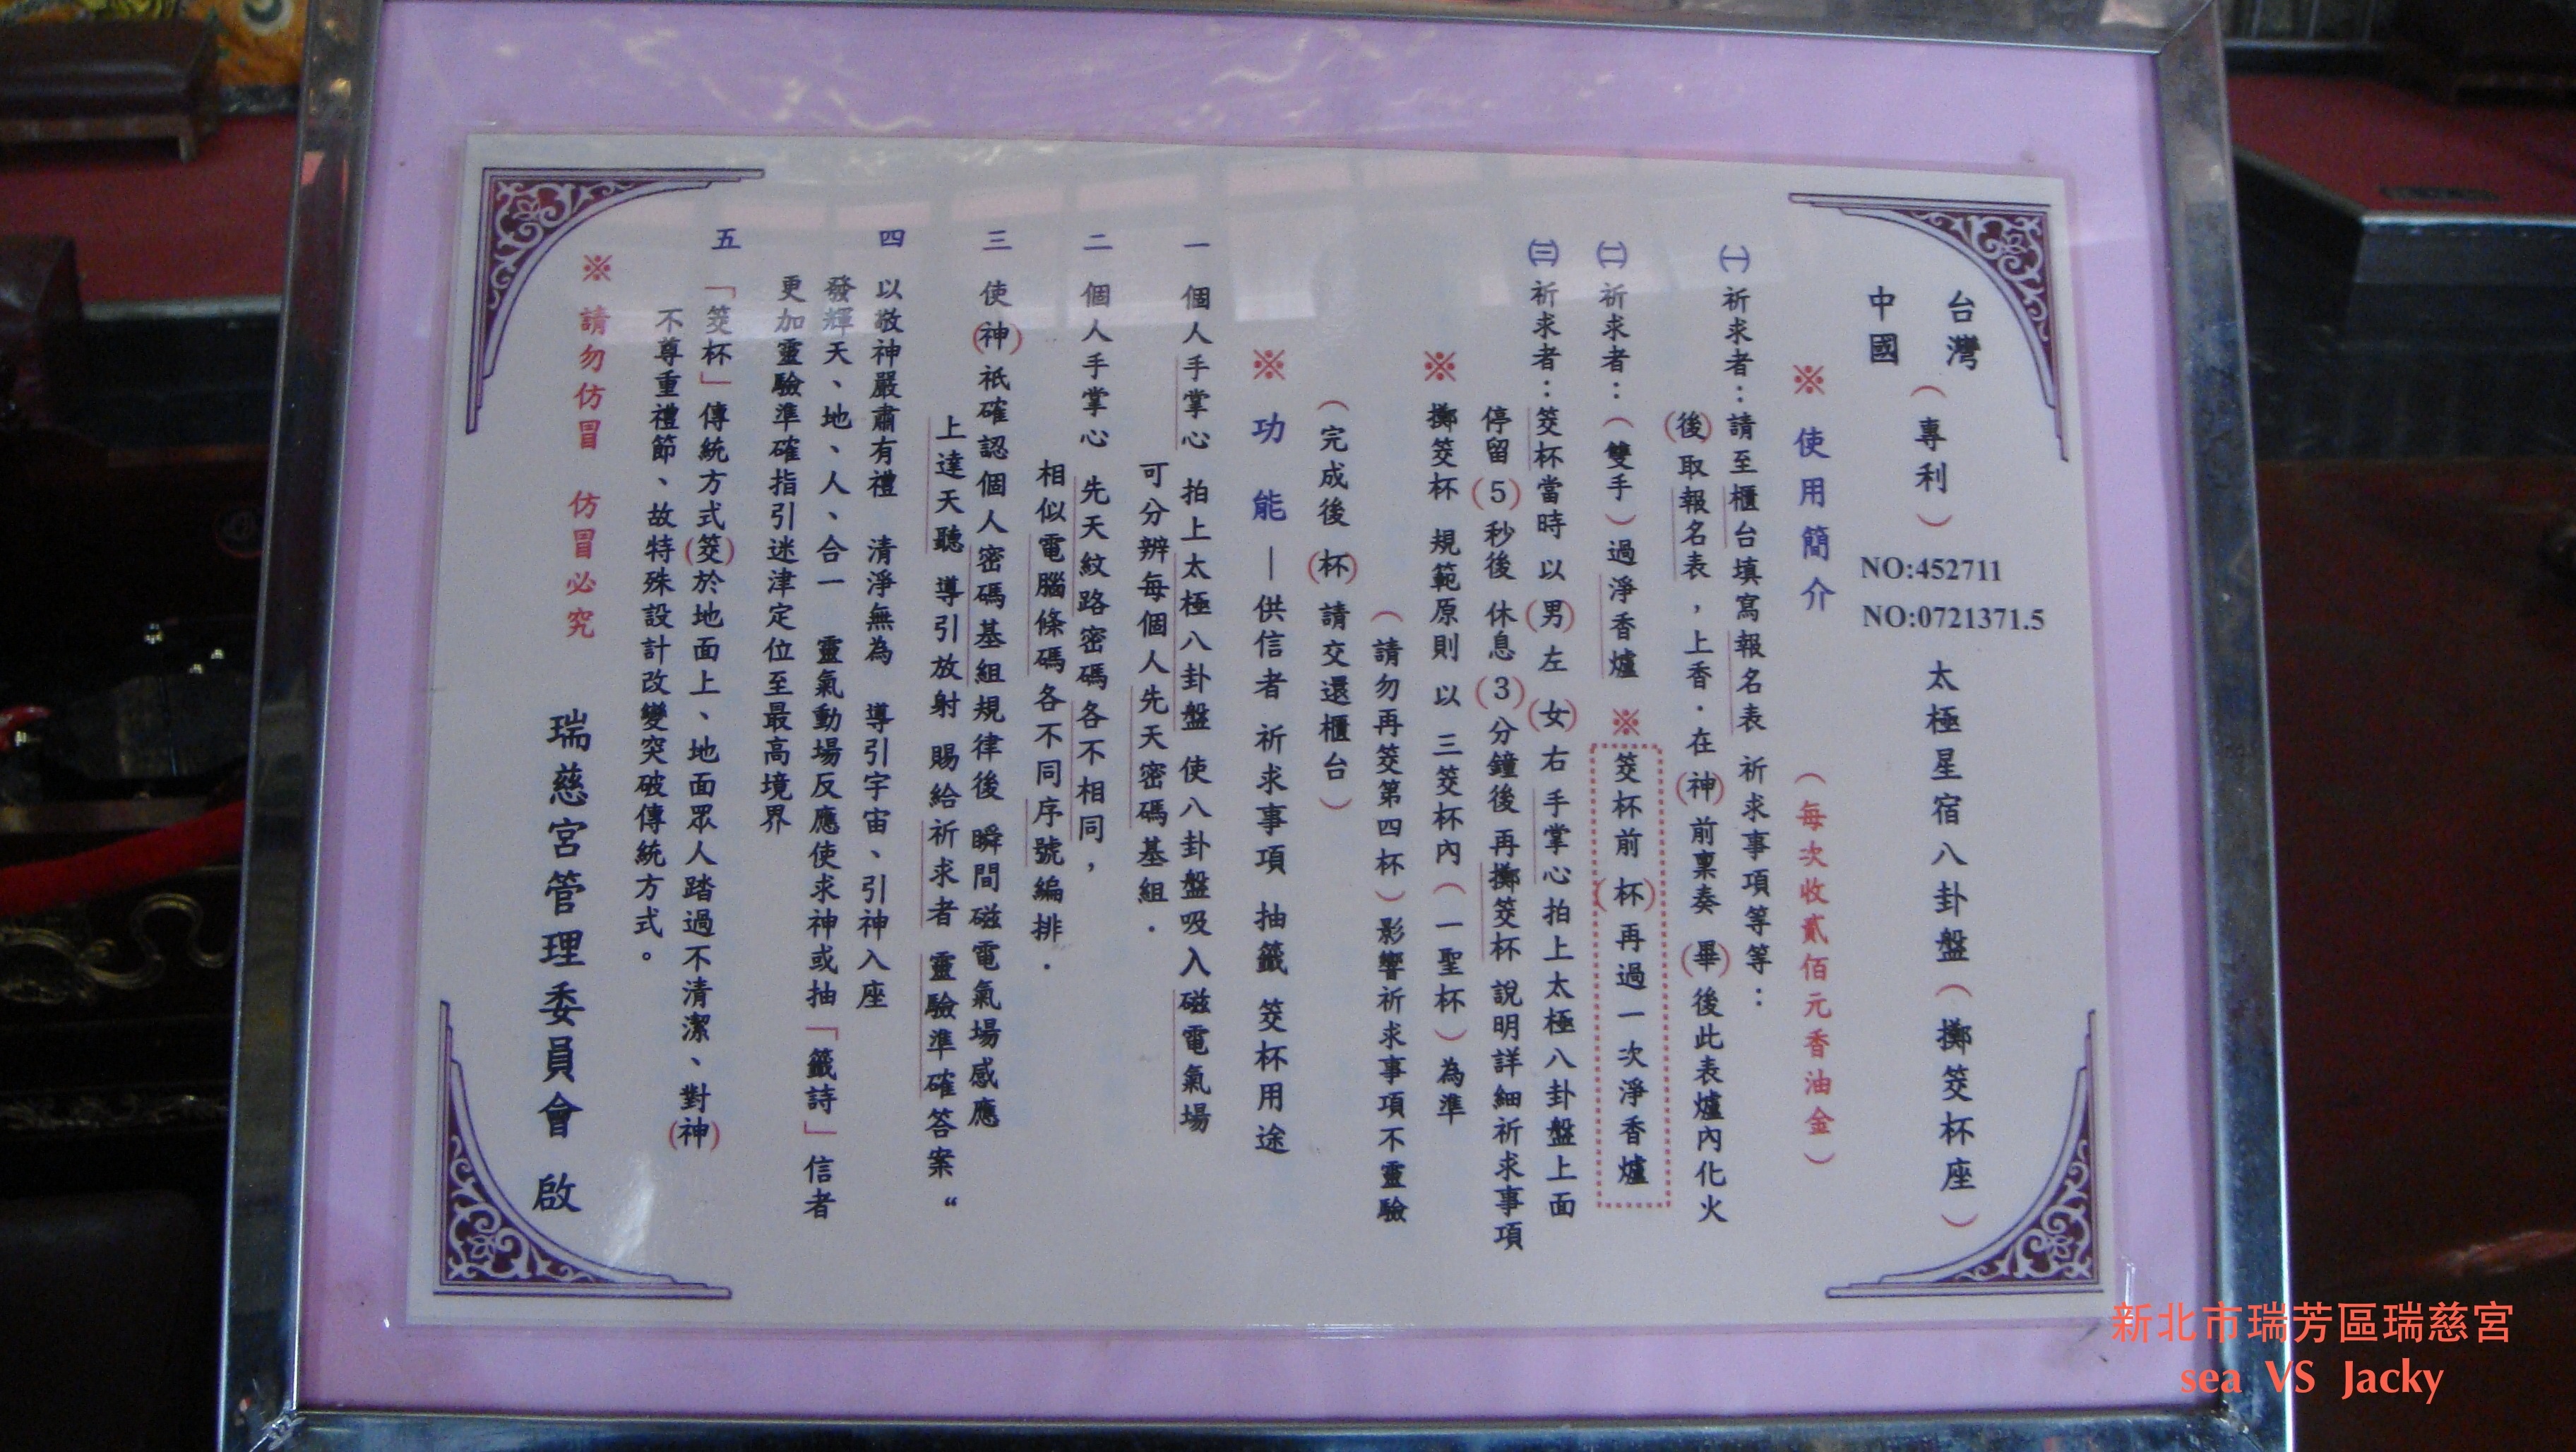 台灣
中國
（專利）
NO:452711
NO:0721371.5
太極星宿八卦盤（擲筊杯座）
※ 使用簡介 （每次收貳佰元香油金）
㈠ 祈求者：請至櫃台填寫報名表 祈求事項等等：
(後)取報名表，上香．在(神)前稟奏 (畢)後此表爐內化火
㈡ 祈求者：（雙手）過淨香爐 ※ 筊杯前 (杯)再過一次淨香爐
㈢ 祈求者：筊杯當時 以(男)左 (女)右 手掌心 拍上太極八卦盤上面
停留(5)秒後 休息(3)分鐘後 再擲筊杯 說明詳細祈求事項
※ 擲筊杯 規範原則 以 三筊杯內（一聖杯）為準
（請勿再筊第四杯）影響祈求事項不靈驗
（完成後 (杯) 請交還櫃台）
※ 功能—供信者 祈求事項 抽籤 筊杯用途
一 個人手掌心 拍上太極八卦盤 使八卦盤吸入磁電氣場
可分辨每個人先天密碼基組．
二 個人手掌心 先天紋路密碼各不相同，
相似電腦條碼各不同序號編排．
三 使(神)祇確認個人密碼基組規律後 瞬間磁電氣場感應
上達天聽 導引放射 賜給祈求者 靈驗準確答案“
四 以敬神嚴肅有禮 清淨無為 導引宇宙、引神入座
發輝天、地、人、合一 靈氣動場反應使求神或抽「籤詩」信者
更加靈驗準確指引迷津定位至最高境界
五 「筊杯」傳統方式(筊)於地面上、地面眾人踏過不清潔、對(神)
不尊重禮節、故特殊設計改變突破傳統方式。
※ 請勿仿冒 仿冒必究
瑞慈宮管理委員會 啟
新北市瑞芳區瑞慈宮
sea VS Jacky